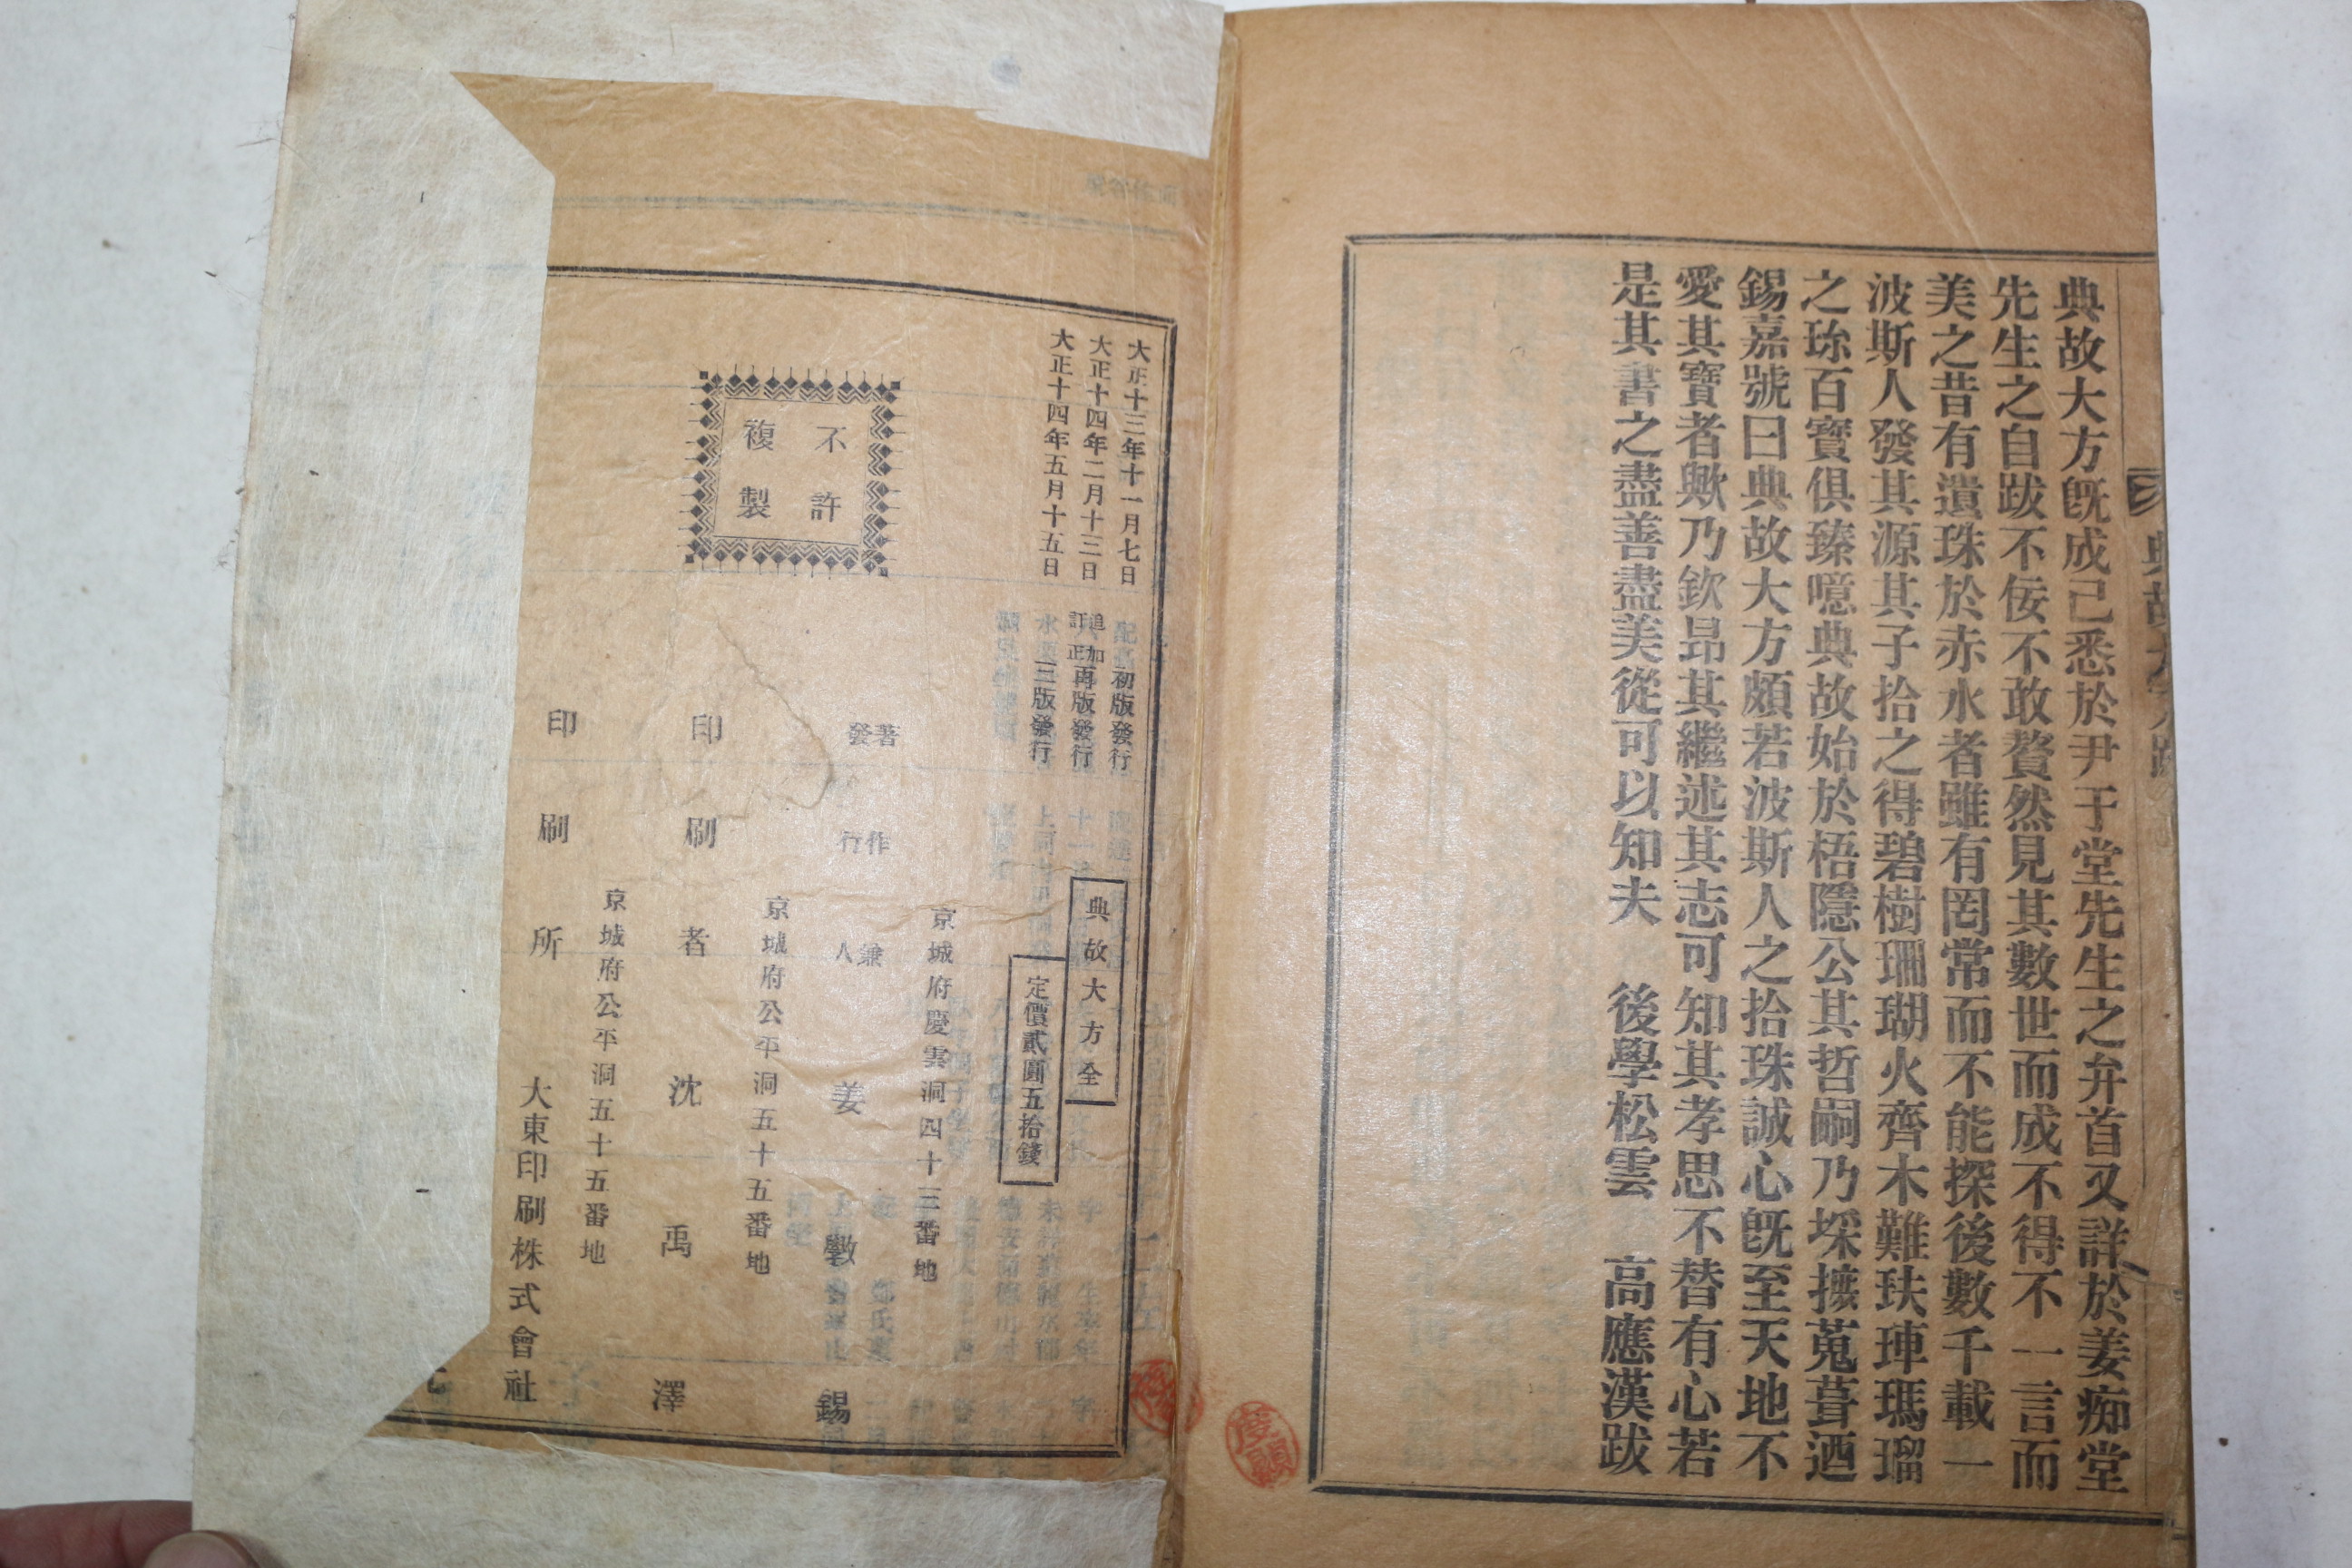 典故大方旣成已悉於尹于堂先生之弁首又詳於姜痴堂
先生之自跋不佞不敢贅然見其數世而成不得不一言而
美之昔有遺珠於赤水者雖有罔常而不能探後數千載一
波斯人發其源其子拾之得碧樹珊瑚火齊木難玞琿瑪瑠
之珎百寶俱臻噫典故始於梧隱公其哲嗣乃埰摭蒐葺迺
錫嘉號曰典故大方頗若波斯人之拾珠誠心旣至天地不
愛其寶者歟乃欽昻其繼述其志可知其孝思不替有心若
是其書之盡善盡美從可以知夫 後學松雲 高應漢跋
大正十三年十一月七日 初版發行
大正十四年二月十三日 追加訂正再版發行
大正十四年五月十五日 三版發行
典故大方全
定價貳圓五拾錢
不許
複製
京城府慶雲洞四十三番地
著作兼
發行人 姜斅錫
京城府公平洞五十五番地
印刷者 沈禹澤
京城府公平洞五十五番地
印刷所 大東印刷株式會社